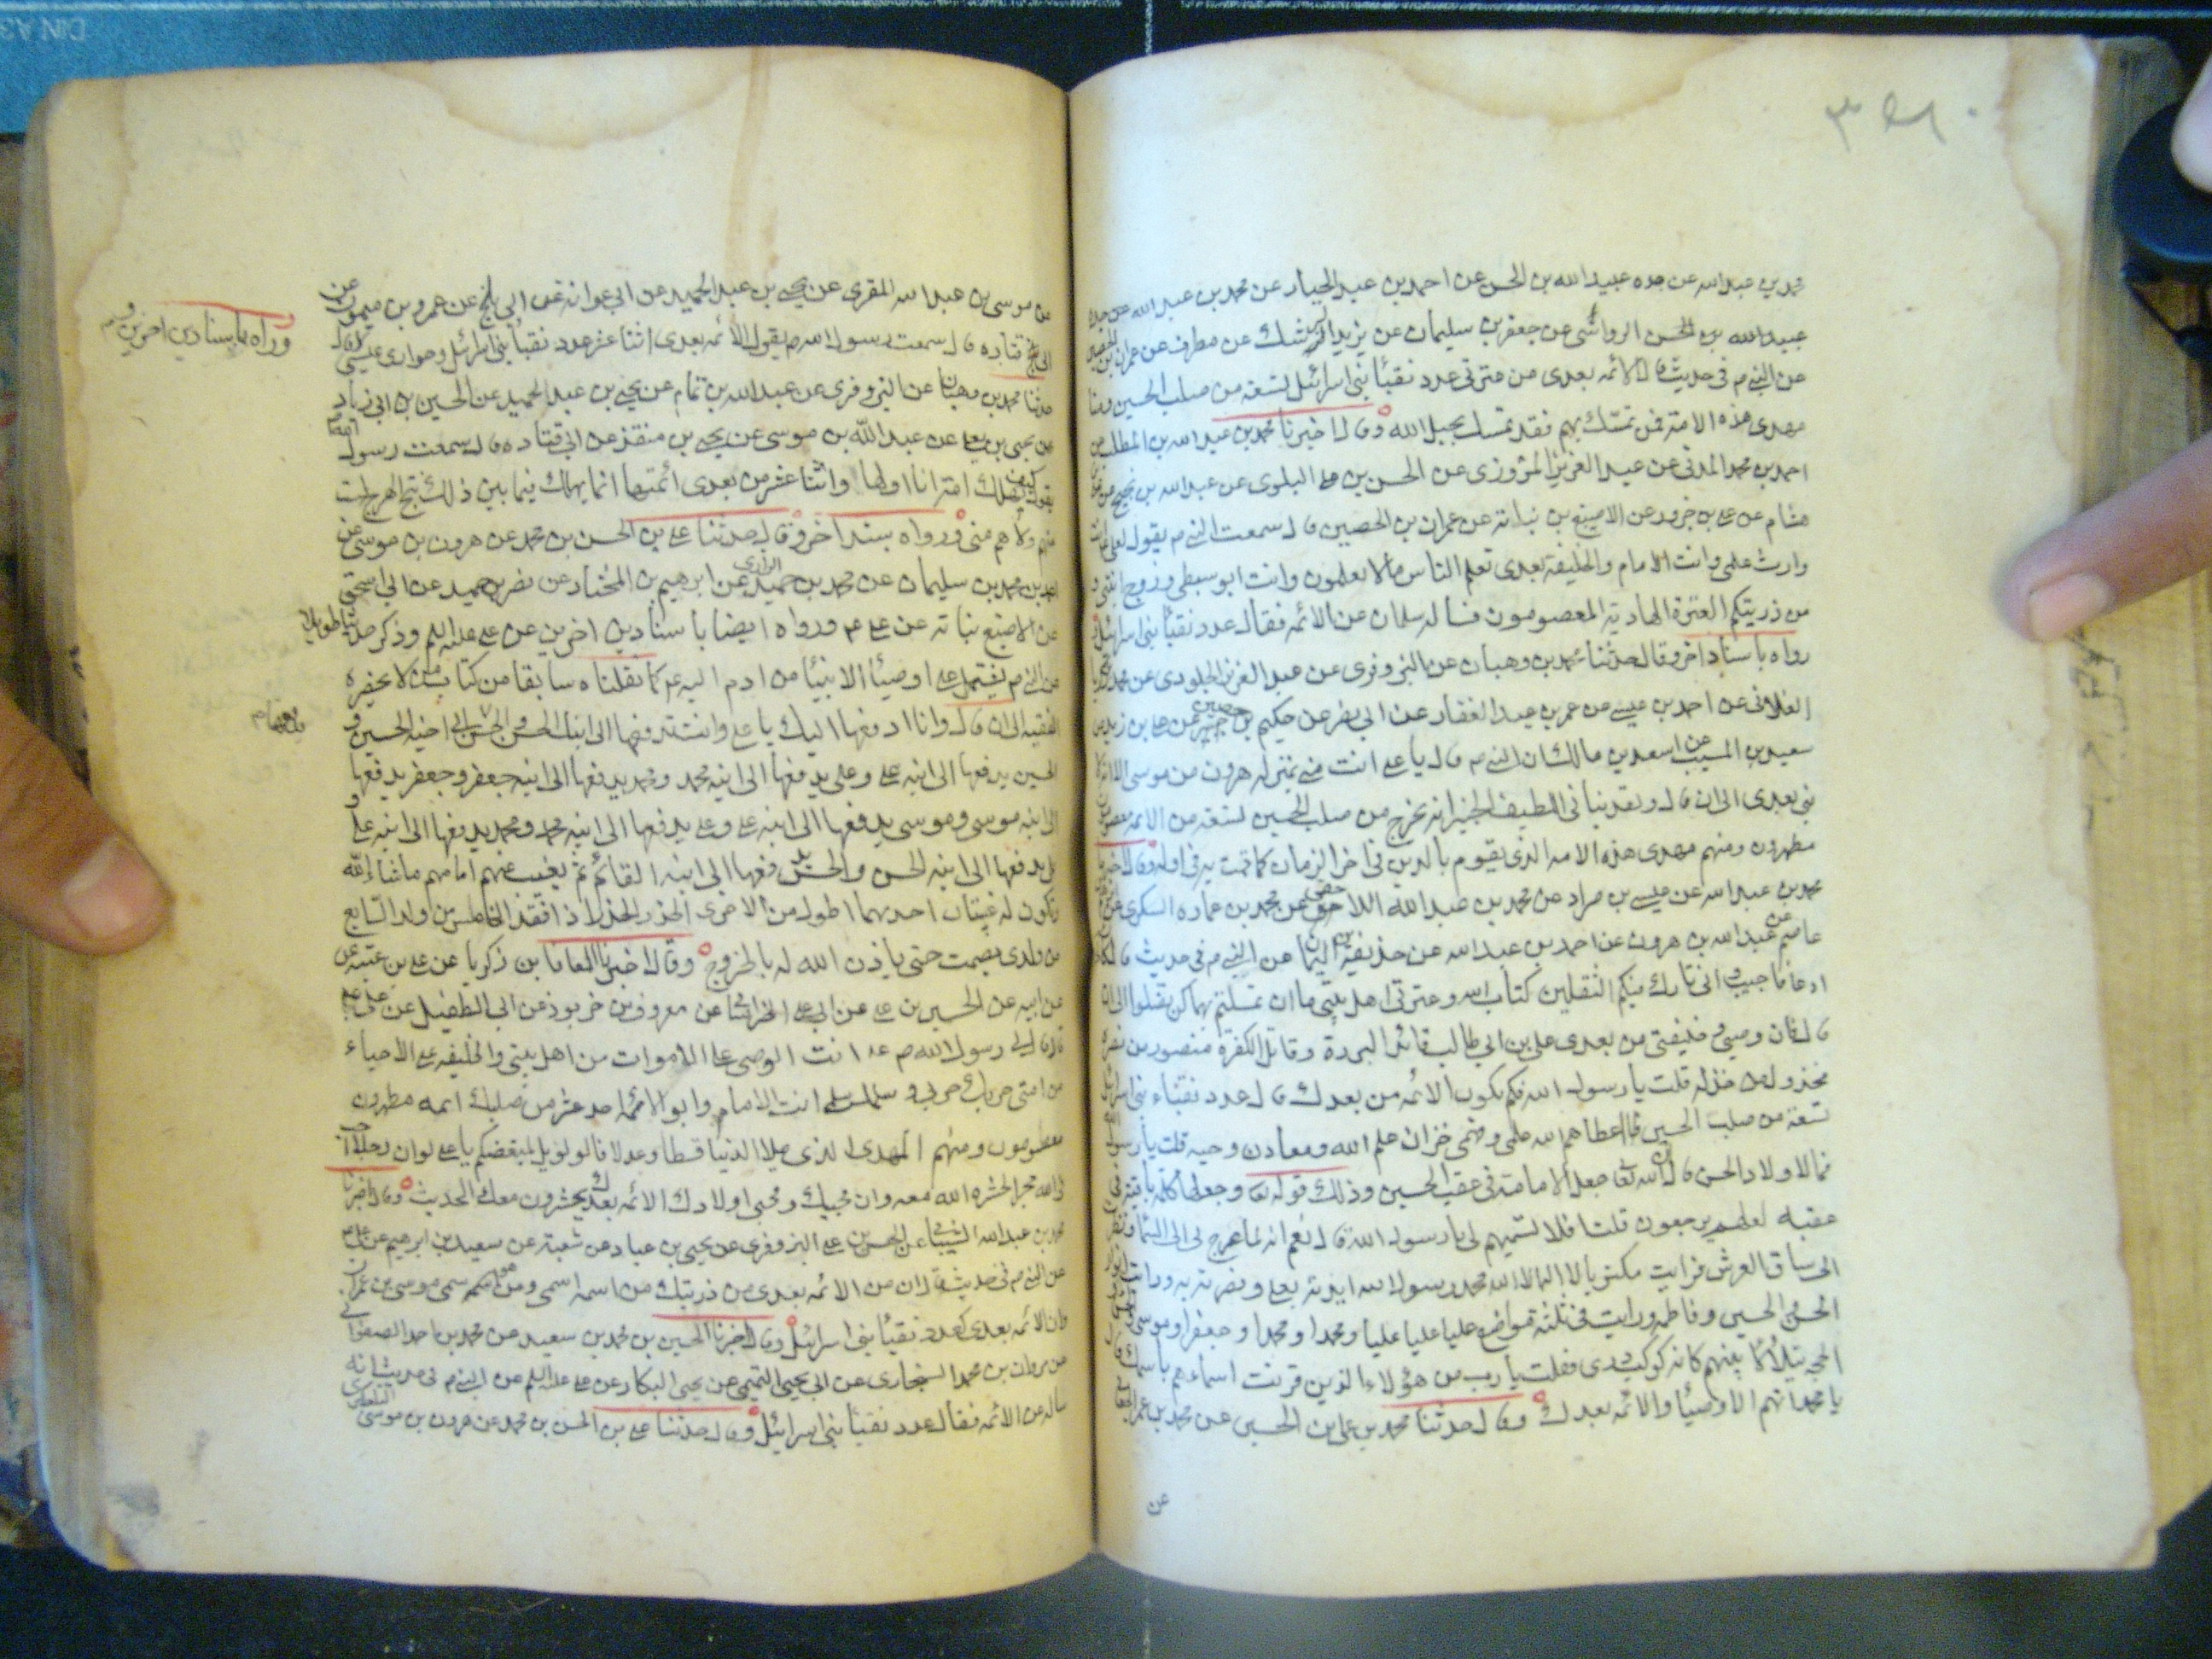 محمد بن عبد الله عن جده عبيد الله بن الحسن عن احمد بن عبد الجبار عن محمد بن عبد الله عن جده
عبيد الله بن الحسن الرواسى عن جعفر بن سليمان عن يزيد الرشك عن مطرف عن عمران بن الحصين
عن النبي ص فى حديث قال الائمه بعدى من عترتى عدد نقباء بنى اسرائيل تسعة من صلب الحسين ومنا
مهدى هذه الامة فمن تمسك بهم فقد تمسك بحبل الله وقال اخبرنا محمد بن عبد الله بن المطلب عن
احمد بن محمد المدنى عن عبد العزيز المروزى عن الحسن بن على البلوى عن عبد الله بن نجيح عن
هشام عن على بن خرود عن الاصبغ بن نباتة عن عمران بن الحصين قال سمعت النبي ص يقول لعلى انت
وارث علمى وانت الامام والخليفة بعدى تعلم الناس ما لا يعلمون وانت ابو سبطى وزوج ابنتى و
من ذريتكم العترة الهادية المعصومون فساله سلمان عن الائمه فقال عدد نقباء بنى اسرائيل
رواه باسناد اخر وقال حدثنا محمد بن وهبان عن البزوفرى عن عبد العزيز الجلودى عن محمد بن زكريا
الغلابى عن احمد بن عيسى عن عمر بن عبد الغفار عن ابى بصر عن حكيم بن جبير عن على بن زيد عن
سعيد بن المسيب عن سعد بن مالك ان النبي ص قال يا على انت منى بمنزلة هرون من موسى الا انه لا
نبى بعدى الى ان قال ولقد نبانى اللطيف الخبير انه يخرج من صلب الحسين تسعة من الائمه معصومون
مطهرون ومنهم مهدى هذه الامه الذى يقوم بالدين فى اخر الزمان كما قمت به فى اوله وقال اخبرنا
محمد بن عبد الله عن عيسى بن مراد عن محمد بن عبد الله اللاحقى عن محمد بن عماره السكرى عن
عاصم عن عبد الله بن هرون عن احمد بن عبد الله عن حذيفة بن اليمان عن النبي ص فى حديث قال
ادعا فاجيب وانى تارك فيكم الثقلين كتاب الله وعترتى اهل بيتى ما ان تمسكتم بهما لن تضلوا الى ان
قال فان وصيى وخليفتى من بعدى على بن ابى طالب قائد البررة وقاتل الكفرة منصور من نصره
مخذول من خذله قلت يا رسول الله فكم يكون الائمه من بعدك قال عدد نقباء بنى اسرائيل
تسعة من صلب الحسين اعطاهم الله علمى وفهمى خزان علم الله ومعادن وحيه قلت يا رسول
فما لاولاد الحسن قال ان الله تعالى جعل الامامة فى عقب الحسين وذلك قوله تعالى وجعلها كلمة باقية فى
عقبه لعلهم يرجعون قلت افلا تسميهم لى يا رسول الله قال نعم انه لما عرج بى الى السماء ونظرت
الى ساق العرش فرايت مكتوبا لا اله الا الله محمد رسول الله ايدته بعلى ونصرته به ورايت انوار
الحسن والحسين وفاطمه ورايت فى ثلثة مواضع عليا عليا عليا ومحمدا ومحمدا وجعفرا وموسى
الحجه يتلألأ بينهم كانه كوكب درى فقلت يا رب من هؤلاء الذين قرنت اسماءهم باسمك
يا محمد انهم الاوصياء والائمه بعدك وقال حدثنا محمد بن على بن الحسين عن محمد بن عمر
عن
عن موسى بن عبد الله المقرى عن يحيى بن عبد الحميد عن ابى عوانة عن ابى بلج عن عمرو بن ميمون عن
قتاده قال سمعت رسول الله ص يقول الائمه بعدى اثنا عشر عدد نقباء بنى اسرائيل وحوارى عيسى
ورواه باسنادين اخرين
حدثنا محمد بن وهبان عن البزوفرى عن عبد الله بن تمام عن يحيى بن عبد الحميد عن الحسين بن ابى زياد
عن يحيى بن يعلى عن عبد الله بن موسى عن يحيى بن منقذ عن ابى قتاده قال سمعت رسول
يقول كيف تهلك امة انا اولها واثنا عشر من بعدى ائمتها انما يهلك فيما بين ذلك ثبج الهرج لست
منهم ولا هم منى ورواه بسند اخر وقال حدثنا على بن الحسن بن محمد عن هرون بن موسى عن
احمد بن محمد بن سليمان عن محمد بن حميد الرازى عن ابرهيم بن المختار عن نصر بن حميد عن ابى اسحق
عن الاصبغ نباته عن على ع ورواه ايضا باسنادين اخرين عن على عليه السلم وذكر حديثا طويلا
عن النبي ص يشتمل على اوصياء الانبياء من ادم اليه ص كما نقلناه سابقا من كتاب من لا يحضره
الفقيه الى ان قال وانا ادفعها اليك يا على وانت تدفعها الى ابنك الحسن والحسن الى اخيه الحسين و
الحسين يدفعها الى ابنه على وعلى يدفعها الى ابنه محمد ومحمد يدفعها الى ابنه جعفر وجعفر يدفعها
الى ابنه موسى وموسى يدفعها الى ابنه على وعلى يدفعها الى ابنه محمد ومحمد يدفعها الى ابنه على و
على يدفعها الى ابنه الحسن والحسن يدفعها الى ابنه القائم ثم يغيب عنهم امامهم ما شاء الله
وتكون له غيبتان احدهما اطول من الاخرى الحذر الحذر اذا فقد الخامس من ولد السابع
من ولدى يصمت حتى ياذن الله له بالخروج وقال اخبرنا المعافا بن زكريا عن على بن عتبه عن
عن ابيه عن الحسين بن على عن ابى على الخراسانى عن معروف بن خربوذ عن ابى الطفيل عن على ع
قال قال لى رسول الله ص انت الوصى على الاموات من اهل بيتى والخليفه على الاحياء
من امتى حربك حربى وسلمك سلمى انت الامام وابو الائمه احد عشر من صلبك ائمه مطهرون
معصومون ومنهم المهدى الذى يملا الدنيا قسطا وعدلا فالويل لمبغضكم يا على لو ان رجلا احب
فى الله حجرا لحشره الله معه وان محبيك ومحبى اولادك الائمه بعدك يحشرون معك الحديث وقال اخبرنا
محمد بن عبد الله الشيبانى عن الحسن بن على البزوفرى عن يحيى بن عباد عن شعبة عن سعيد بن ابرهيم عن
عن النبي ص فى حديث قال ان من الائمه بعدى من ذريتك من اسمه اسمى ومن هو سمى موسى بن عمران
وان الائمه بعدى كعدد نقباء بنى اسرائيل وقال اخبرنا الحسين بن محمد بن سعيد عن محمد بن احمد الصفوانى
عن مروان بن محمد السنجارى عن ابى يحيى التميمى عن يحيى البكاء عن على عليه السلم عن النبي ص فى حديث انه
ساله عن الائمه فقال عدد نقباء بنى اسرائيل وقال حدثنا على بن الحسن بن محمد عن هرون بن موسى التلعكبرى